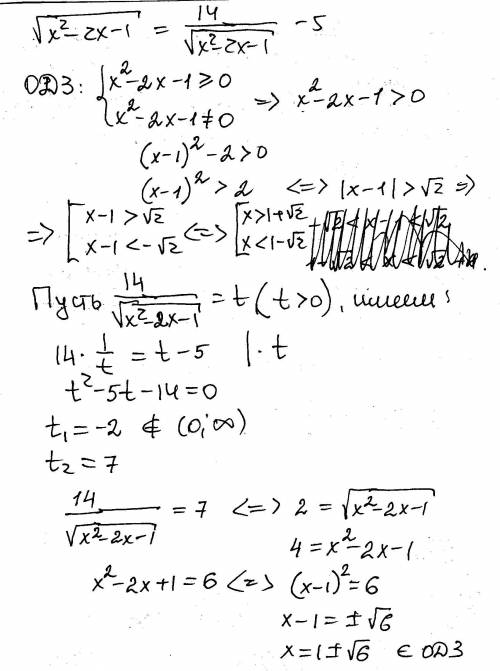 √(x²-2x-1) = 14/√(x²-2x-1) -5
ОДЗ: {x²-2x-1⩾0 x²-2x-1≠0 => x²-2x-1>0
(x-1)²-2>0
(x-1)²>2 <=> |x-1|>√2 =>
=> [x-1>√2 x-1<-√2 <=> [x>1+√2 x<1-√2
Пусть 14/√(x²-2x-1) = t (t>0), имеем:
14·1/t = t-5 |·t
t²-5t-14=0
t₁=-2 ∉ (0;∞)
t₂=7
14/√(x²-2x-1) = 7 <=> 2 = √(x²-2x-1)
4=x²-2x-1
x²-2x+1=6 <=> (x-1)²=6
x-1=±√6
x=1±√6 ∈ ОДЗ